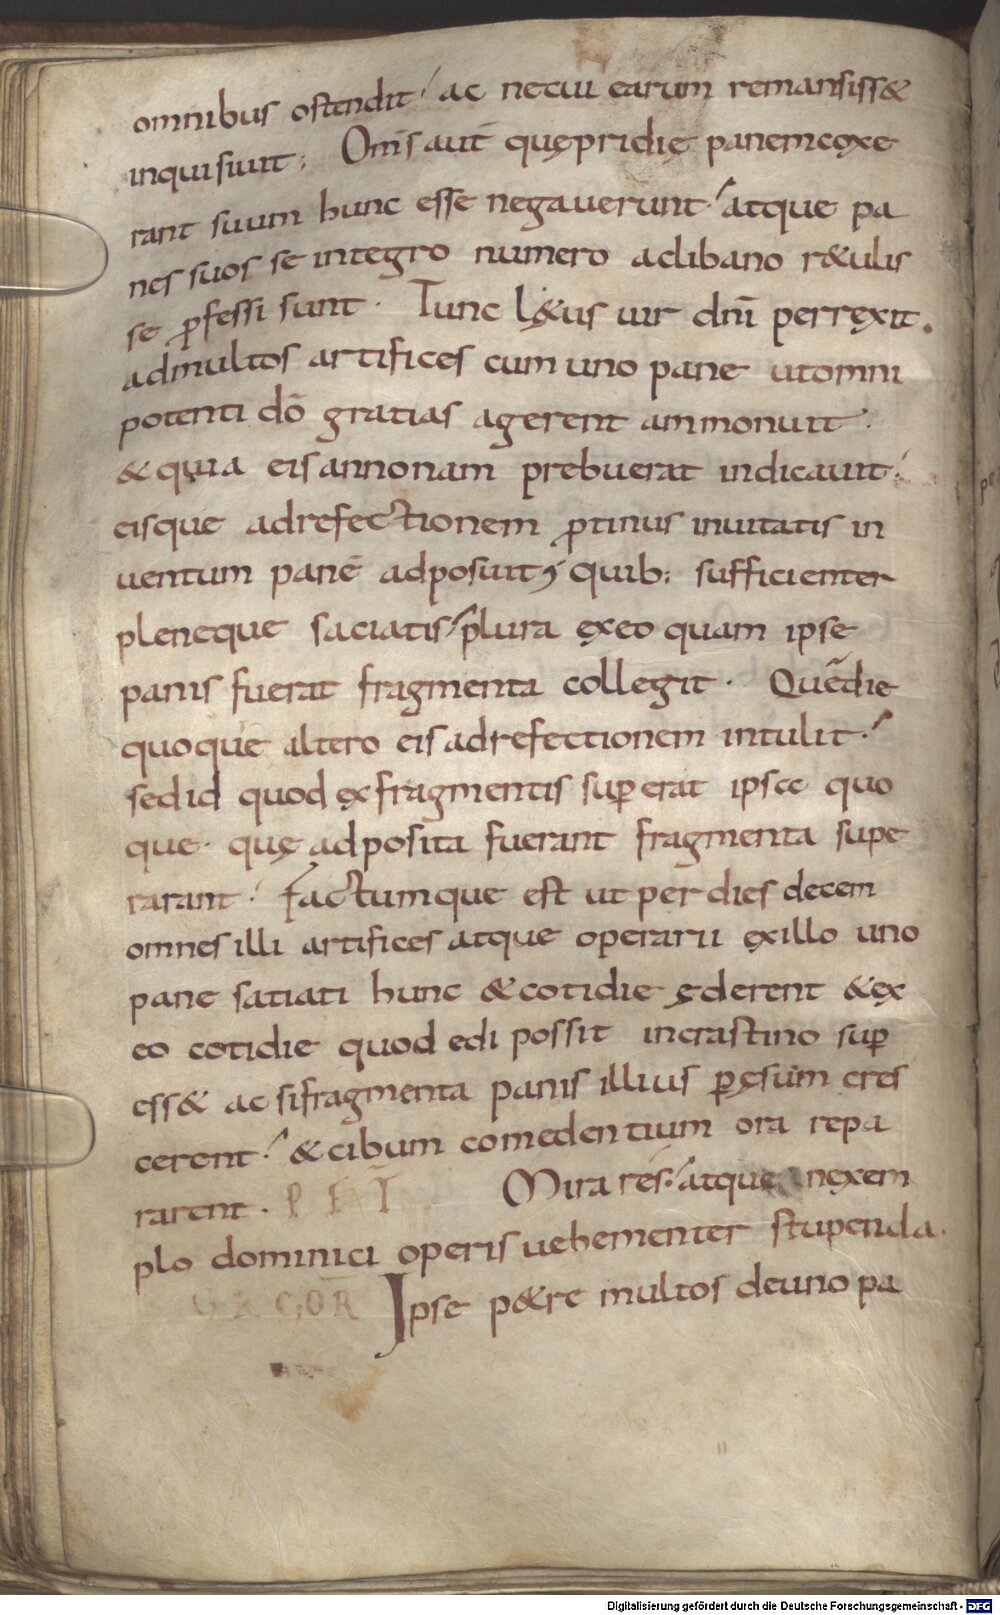 omnibus ostendit ac necui earum remansiss&
inquisiuit; Om̄s aut̄ quę pridię panem coxe
rant suum hunc esse negauerunt atque pa
nes suos se integro numero aclibano r&ulis
se ꝓfessi sunt. Tunc l&us uir dn̄i perręxit.
admultos artifices cum uno pane utomni
potenti dō gratias agerent ammonuit.
& quia eis annonam prebuerat indicauit.
eisque adrefectionem ꝓtinus inuitatis in
uentum panē adposuit; quib; sufficienter
pleneque saciatis plura ęxeo quam ipse
panis fuerat fragmenta collegit. Quēdie
quoque altero eis adrefectionem intulit.
sed id quod ęx fragmentis suꝑerat ipsę quo
que. quę adposita fuerant fragmenta supe
rarant. factumque est ut per dies decem
omnes illi artifices atque operarii ęxillo uno
pane satiati hunc & cotidie ęderent & ęx
eo cotidie quod edi possit incrastino suꝑ
ess& ac sifragmenta panis illius ꝑ ęsum cres
cerent. & cibum comedentium ora repa
rarent. P E T Mira res. atque nęxem
plo dominici operis uehementer stupenda.
GREGOR̄ Ipse p&re multos deuno pa
Digitalisierung gefördert durch die Deutsche Forschungsgemeinschaft - DFG